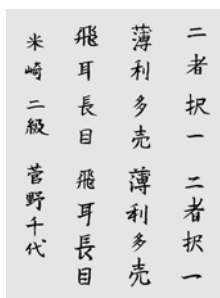 二者択一 二者択一
薄利多売 薄利多売
飛耳長目 飛耳長目
米崎 二級 菅野千代